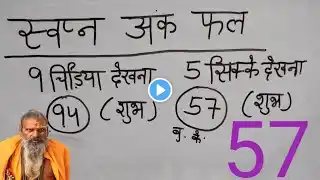 स्वप्न अंक फल
१ चिडिया देखना 5 सिक्के देखना
94 (शुभ) 57 (शुभ)
बु. के.
57